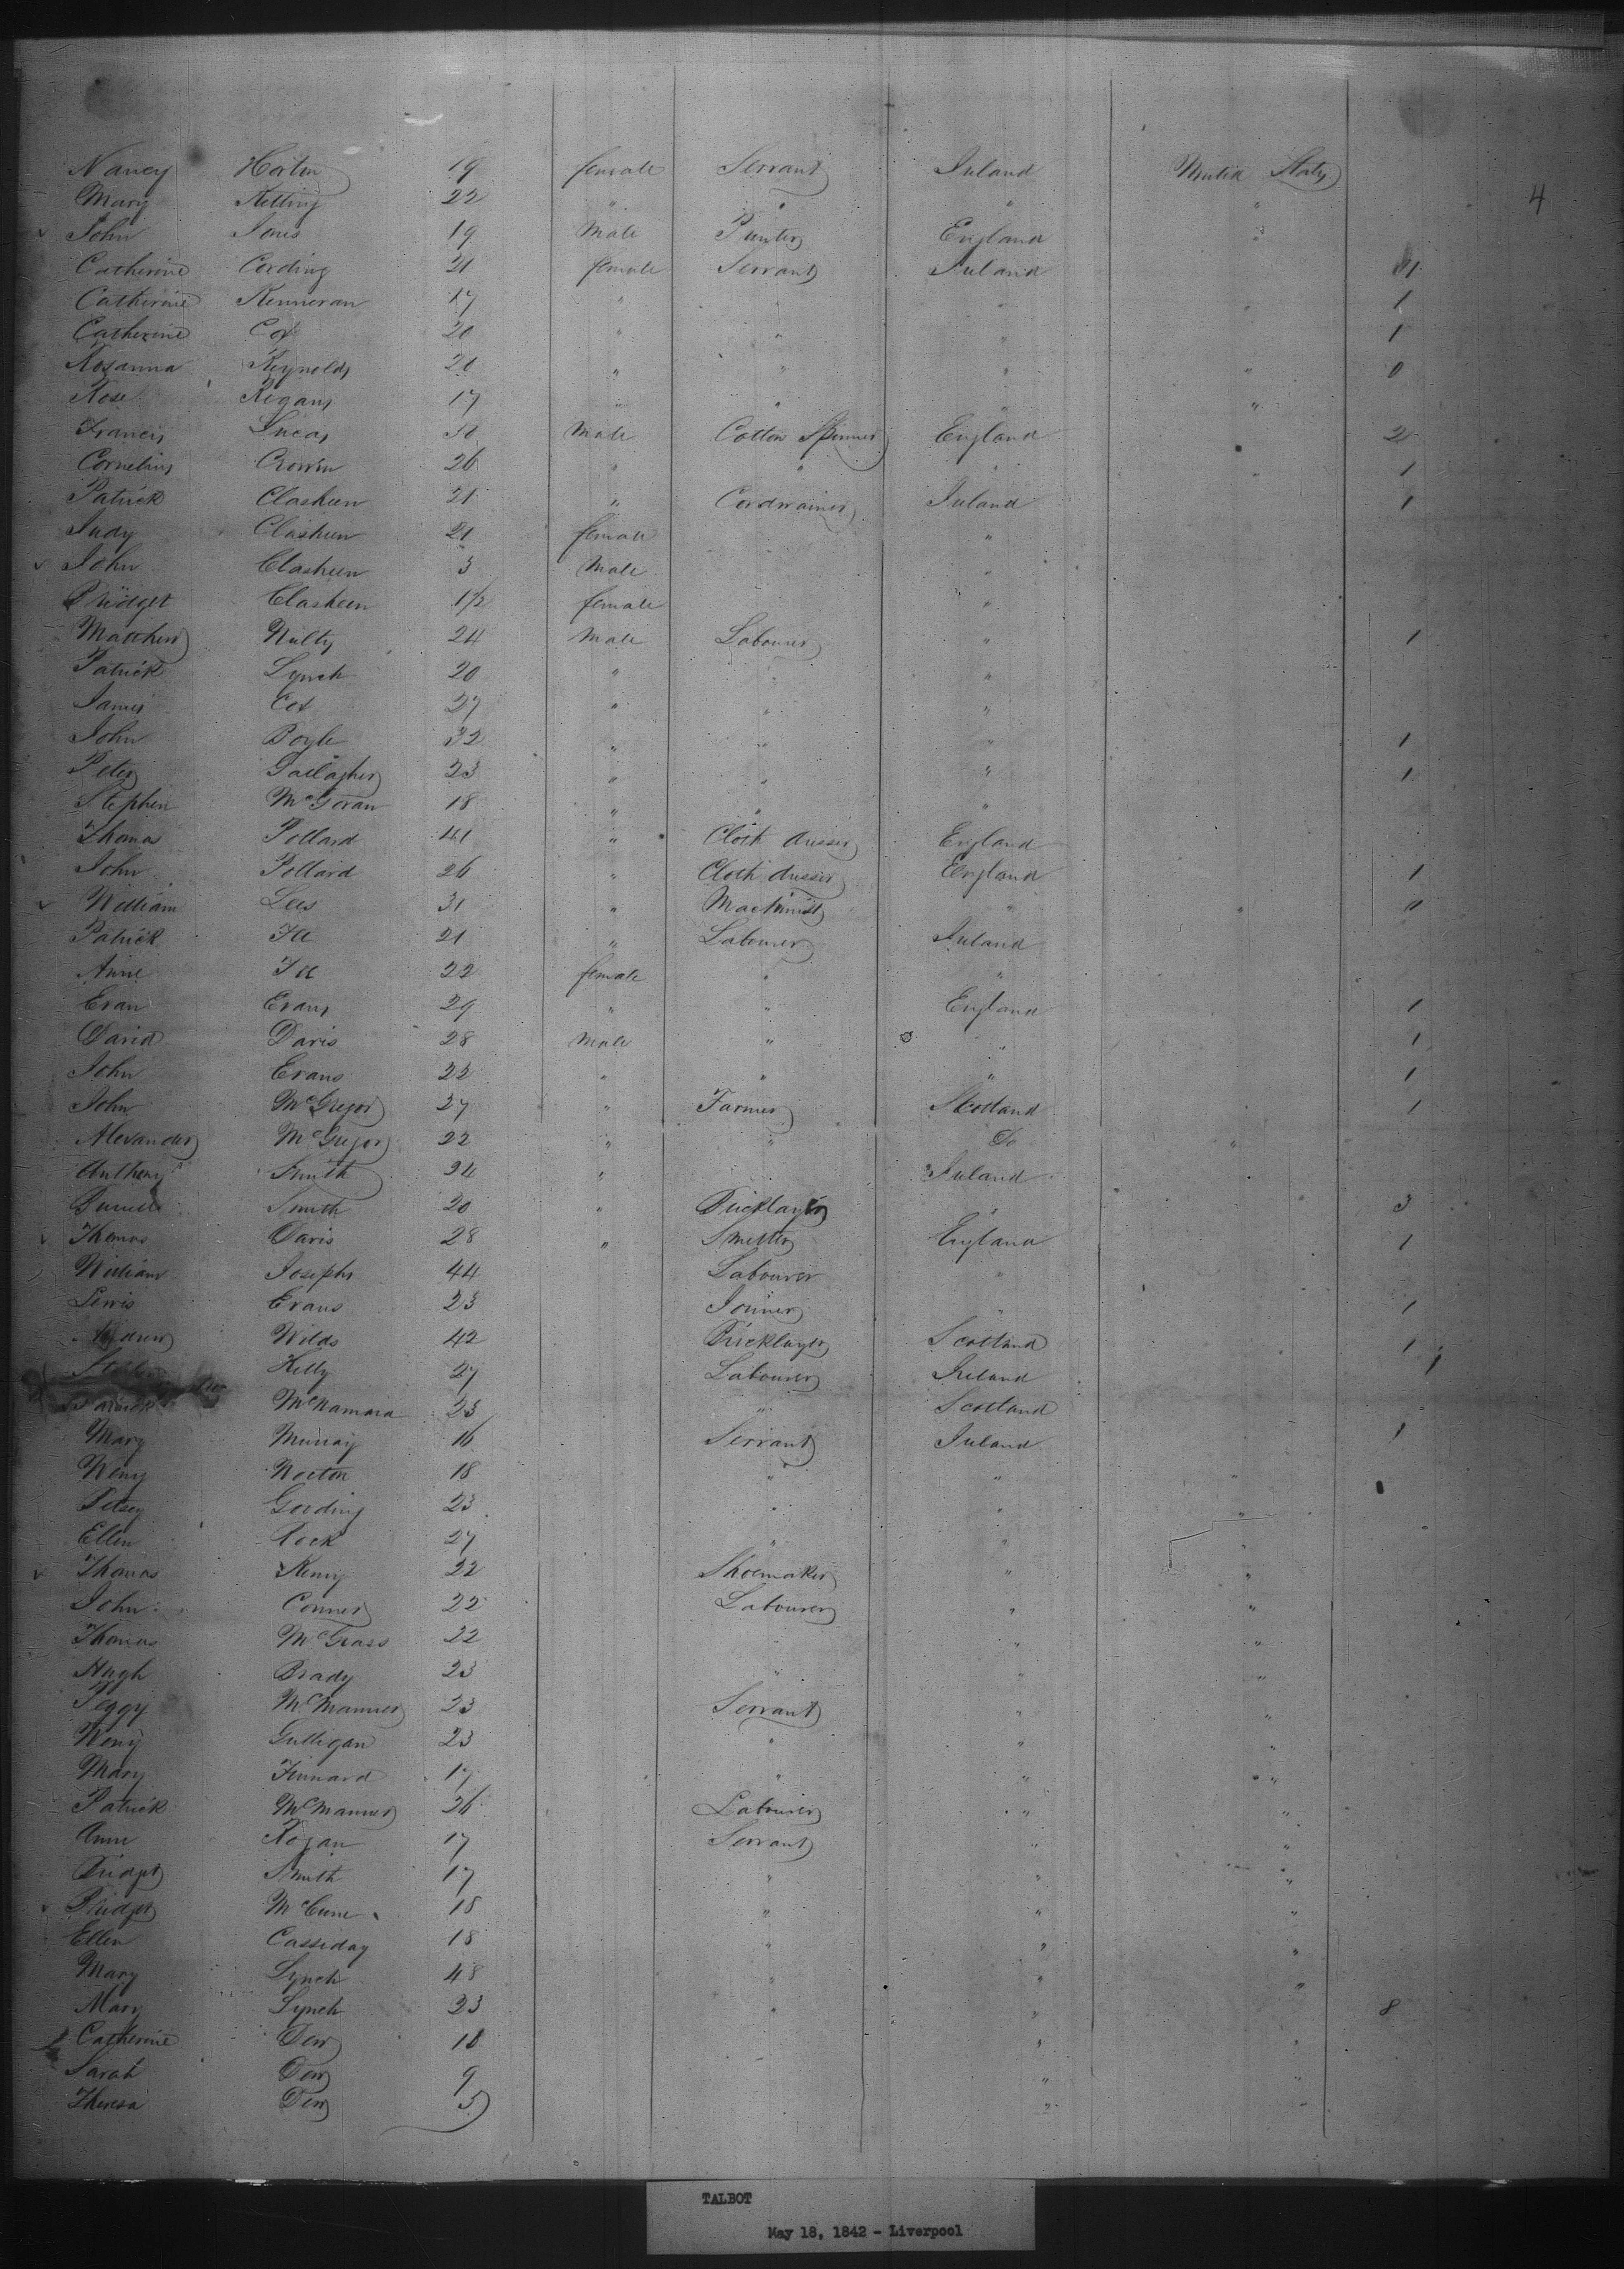 Nancy 19 female Servant Ireland United States
Mary 22 " " " "
4
John 19 Male England "
Catherine 21 female Servant Ireland 1
Catherine Kenneran 17 " " " " 1
Catherine Cox 20 " " " 1
Rosanna Reynolds 20 " " " " 0
Rose Regans 17 " " " "
Francis Lucas 30 Male Cotton Spinner England " 2
Cornelius 26 " " " " 1
Patrick Clasheen 21 " Cordwainer Ireland 1
Judy Clasheen 21 female "
John Clasheen 3 Male "
Bridget Clasheen 1½ female "
Matthew Nulty 24 Male Labourer " 1
Patrick Lynch 20 " " "
James Cox 27 " " "
John Boyle 32 " " " 1
Peter Gallagher 23 " " " 1
Stephen McGoran 18 " " "
Thomas Pollard 41 " Cloth dresser England
John Pollard 26 " Cloth dresser England 1
William Lees 31 " Machinist " " 0
Patrick 21 " Labourer Ireland
Anne 22 female " "
Evan Evans 29 " " England 1
David Davis 28 Male " " 1
John Evans 22 " " " 1
John McGregor 27 " Farmer Scotland 1
Alexander McGregor 22 " " Do "
Anthony Smith 24 " Ireland
Smith 20 " Bricklayer " 3
Thomas Davis 28 " Smelter England 1
William Josephs 44 Labourer "
Lewis Evans 23 Joiner " 1
Andrew Wilds 42 Bricklayer Scotland 1
Kelly 27 Labourer Ireland 1
Patrick McNamara 23 " Scotland
Mary Murray 16 Servant Ireland 1
Norton 18 " " "
Betsey Gooding 23 " " "
Ellen Rock 27 " " "
Thomas Kenny 22 Shoemaker " "
John Conner 22 Labourer " "
Thomas McGrass 22 " "
Hugh Brady 23 " " "
Peggy McManner 23 Servant " "
Gulligan 23 " " "
Mary Finnard 17 " " "
Patrick McManner 26 Labourer " "
Anne Regan 17 Servant " "
Bridget Smith 17 " " "
Bridget McCune 18 " " "
Ellen Casseday 18 " " "
Mary Lynch 48 " " "
Mary Lynch 23 " " 8
Catherine Derr 18 " "
Sarah Derr 9 " "
Theresa Derr 5 " "
TALBOT
May 18, 1842 - Liverpool